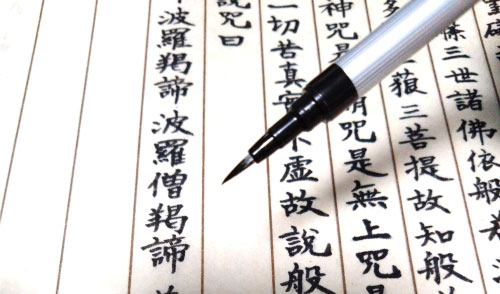 三世諸佛依般
藐三菩提故知般
神咒是明咒是無上咒是
一切苦真實不虛故說般
說咒曰
波羅羯諦波羅僧羯諦